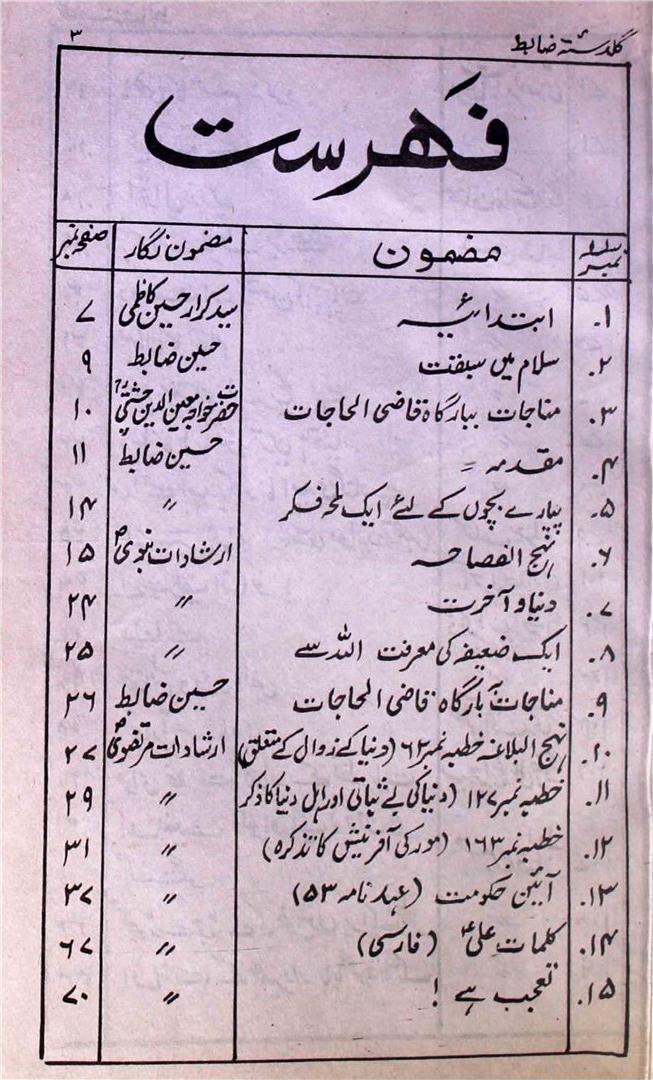 گلدستۂ ضابط ۳
فہرست
سلسلہ نمبر مضمون مضمون نگار صفحہ نمبر
۱۔ ابتدائیہ سید کرار حسین کاظمی ۷
۲۔ سلام میں سبقت حسین ضابط ۹
۳۔ مناجات ببارگاہ قاضی الحاجات حضرت خواجہ معین الدین چشتیؒ ۱۰
۴۔ مقدمہ = حسین ضابط ۱۱
۵۔ پیارے بچوں کے لئے ایک لمحہ فکر 〃 ۱۴
۶۔ نہج الفصاحہ ارشادات نبویؐ ۱۵
۷۔ دنیا و آخرت 〃 ۲۴
۸۔ ایک ضعیفہ کی معرفت اللہ سے 〃 ۲۵
۹۔ مناجات بہ بارگاہ قاضی الحاجات حسین ضابط ۲۶
۱۰۔ نہج البلاغہ خطبہ نمبر ۶۲ (دنیا کے زوال کے متعلق) ارشادات مرتضویؑ ۲۷
۱۱۔ خطبہ نمبر ۱۲۷ (دنیا کی بے ثباتی اور اہل دنیا کا ذکر 〃 ۲۹
۱۲۔ خطبہ نمبر ۱۶۳ (مور کی آفرنیش کا تذکرہ) 〃 ۳۱
۱۳۔ آئین حکومت (عہد نامہ ۵۳) 〃 ۳۷
۱۴۔ کلمات علیؑ (فارسی) 〃 ۶۷
۱۵۔ تعجب ہے ! 〃 ۷۰